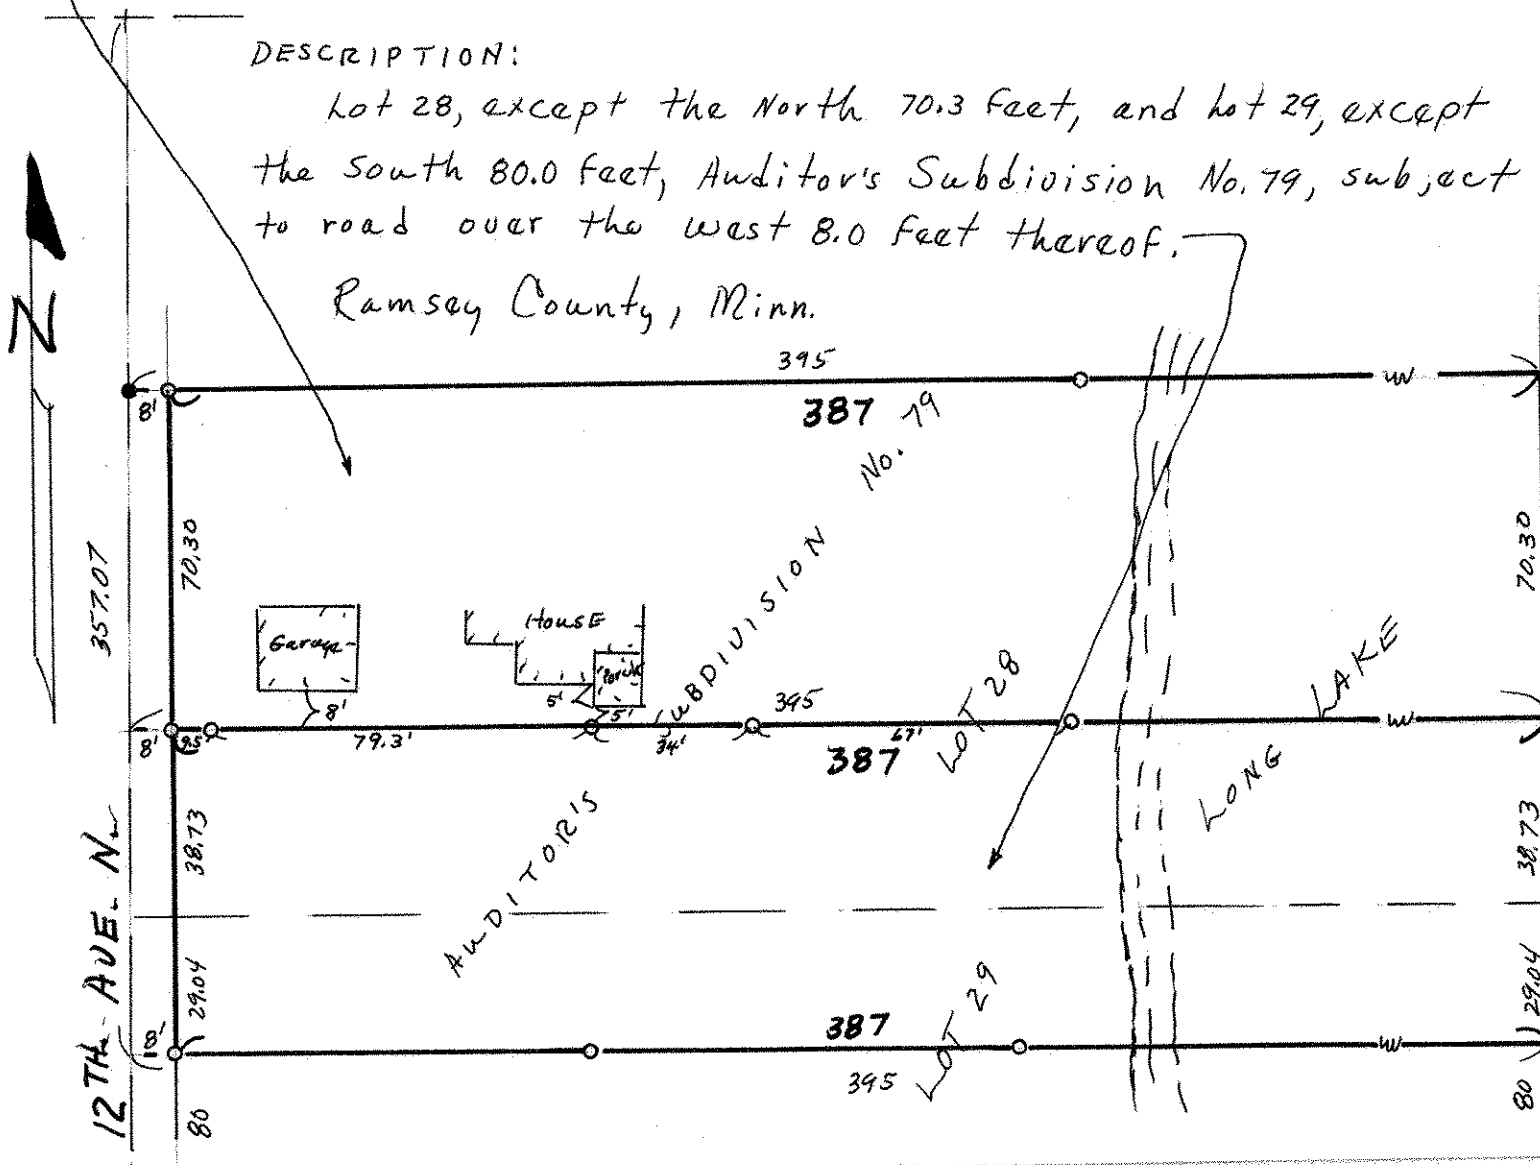 DESCRIPTION:
Lot 28, except the North 70.3 feet, and Lot 29, except
the South 80.0 feet, Auditor's Subdivision No. 79, subject
to road over the west 8.0 feet thereof.
Ramsey County, Minn.
N
395
8'
387
No. 79
357.07
70.30
70.30
Garage
House
Porch
8'
5'
5'
SUBDIVISION
395
LOT 28
LAKE
8'
9.5'
79.3'
34'
67'
387
LONG
38.73
38.73
AUDITOR'S
12TH AVE. N.
29.04
29.04
LOT 29
8'
387
395
80
80